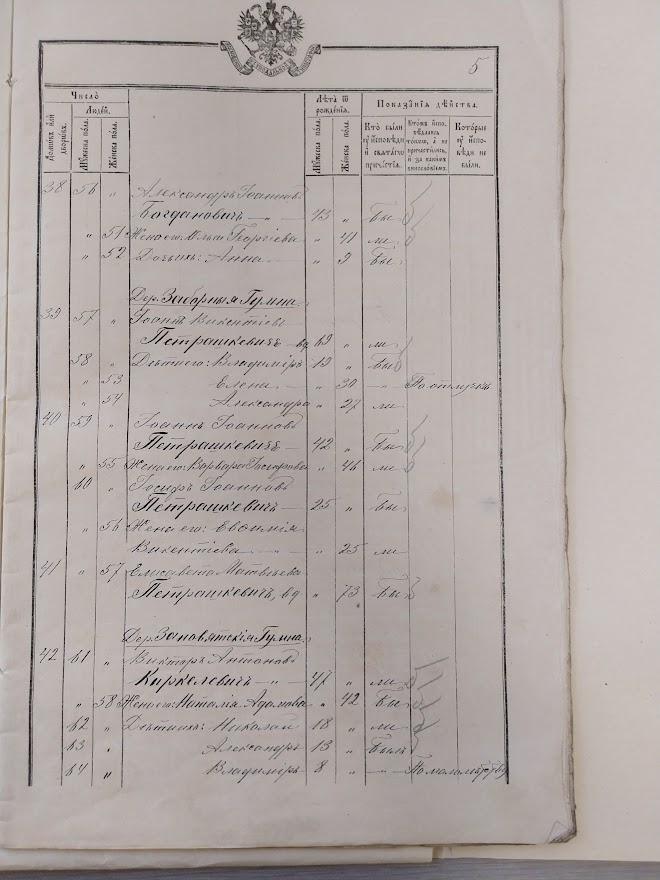 5
Число
Людей.
Домовъ или дворовъ.
Мужеска пола.
Женска пола.
Лѣта ѿ рожденїѧ.
Мужеска пола.
Женска пола.
Показанїѧ дѣйства.
Кто были оу исповѣди и свѧтагѡ причастїѧ.
Которые оу исповѣди не были.
38 56 „ Александръ Іоанновъ
Богдановичъ — „ — 43 „ Бы
„ 51 Жена его: Ольга Георгіева „ 41 ли
„ 52 Дочь ихъ: Анна — „ 9 Бы
Дер. Заборныя Гумна.
39 57 „ Іоаннъ Викентіевъ
Петрашкевичъ — вд 69 „ ли
58 „ Дѣти его: Владиміръ 19 „ Бы
„ 53 Елена — „ 30 — „ По отлучкѣ
„ 54 Александра „ 27 ли
40 59 „ Іоаннъ Іоанновъ
Петрашкевичъ — 42 „ Бы
„ 55 Жена его: Варвара Іосифова „ 46 ли
60 „ Іосифъ Іоанновъ
Петрашкевичъ — 25 „ Бы
„ 56 Жена его: Евѳимія
Викентіева — „ — „ 25 ли
41 „ 57 Елисавета Матвѣева
Петрашкевичъ, вд „ 73 Бы
Дер. Зановятскія Гумна.
42 61 „ Викторъ Антоновъ
Киркелевичъ — „ 47 „ ли
„ 58 Жена его: Наталія Адамова „ 42 Бы
62 „ Дѣти ихъ: Николай 18 „ ли
63 „ Александръ 13 „ Былъ
64 „ Владиміръ 8 „ — „ По малолѣтству